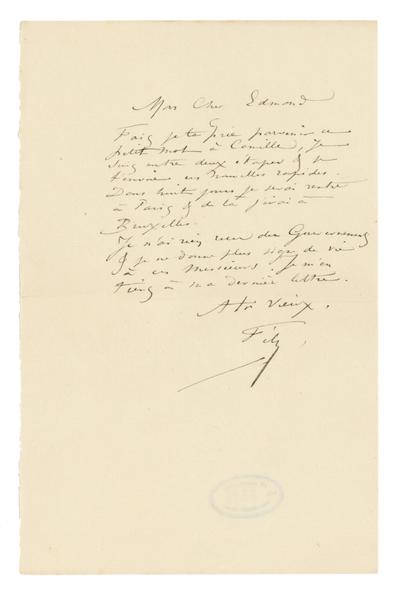 Mon Cher Edmond
Fais je te prie parvenir ce
petit mot à Camille, je
suis entre deux étapes & te
envoie ces nouvelles rapides.
Dans huit jours je serai rentré
à Paris & de là j'irai à
Bruxelles.
Je n'ai rien reçu du Gouvernement
& je ne donne plus signe de vie
à ces Messieurs. Je m'en
tiens à ma dernière lettre.
A toi Vieux.